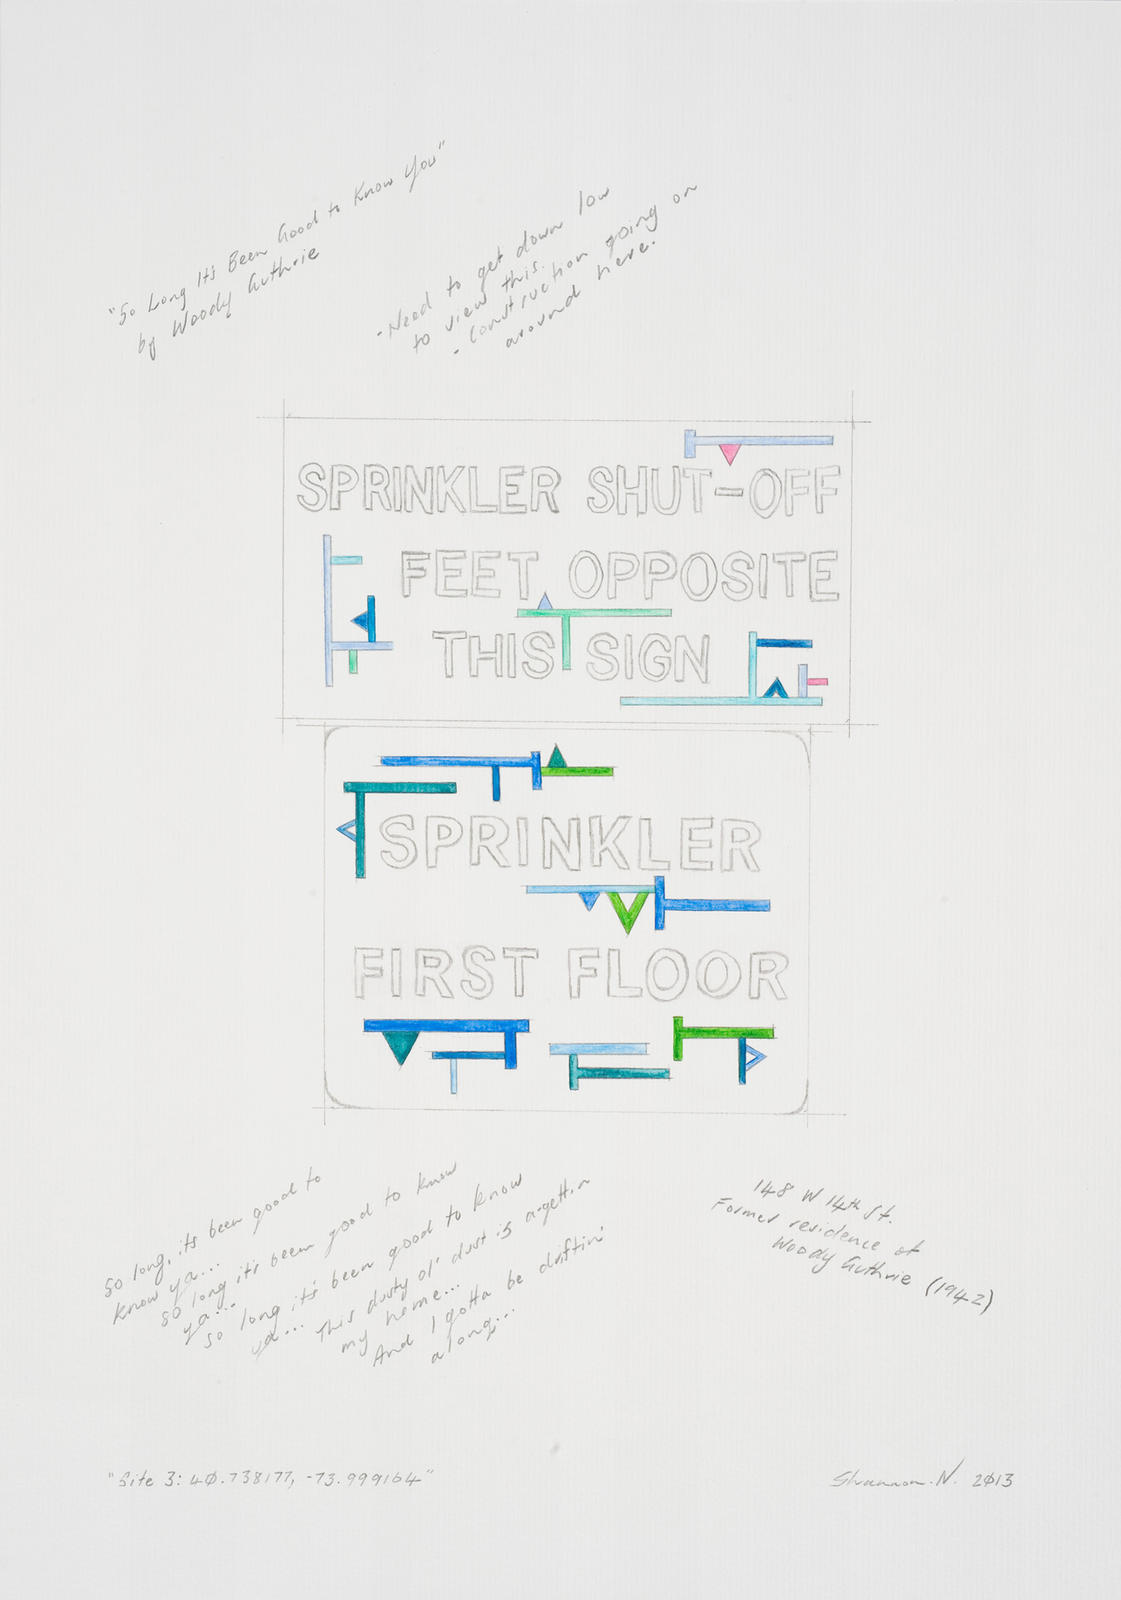 "So Long It's Been Good to Know You"
by Woody Guthrie
- Need to get down low
to view this.
- Construction going on
around here.
SPRINKLER SHUT-OFF
FEET OPPOSITE
THIS SIGN
SPRINKLER
FIRST FLOOR
So long, its been good to
know ya...
so long it's been good to know
ya...
so long it's been good to know
ya... This dusty ol' dust is a-gettin
my home...
And I gotta be driftin'
along...
148 W 14th St.
Former residence of
Woody Guthrie (1942)
"Site 3: 40.738177, -73.999164"
Shannon. N. 2013